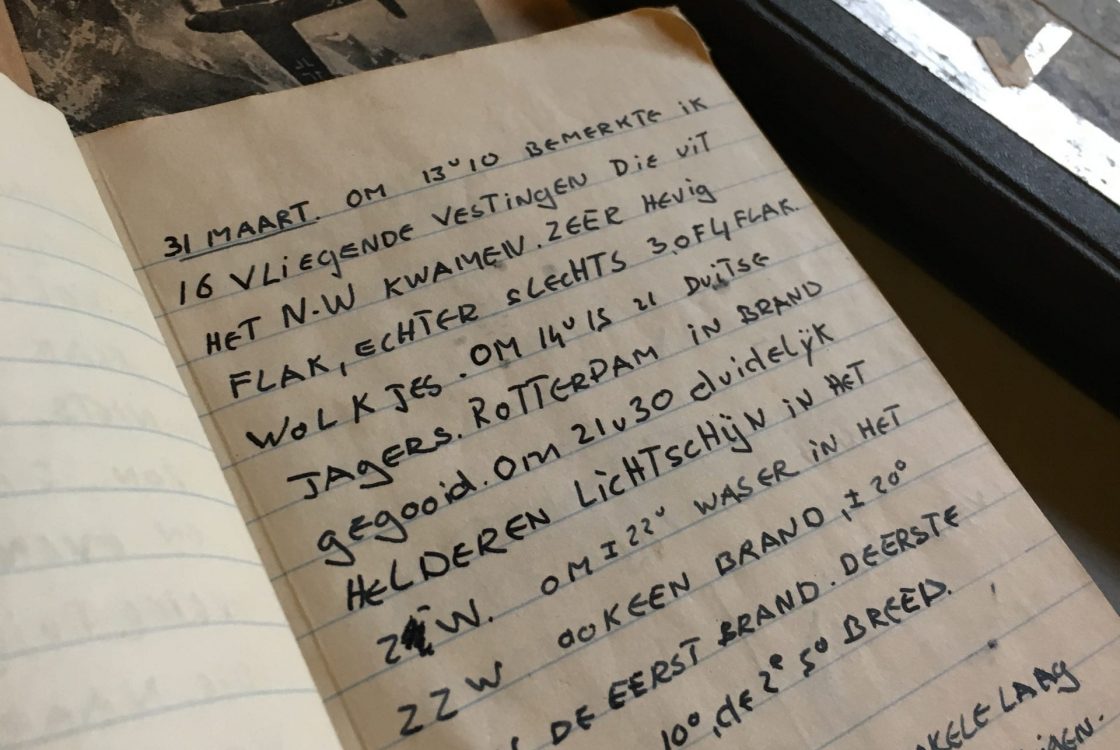 31 MAART. OM 13ᵘ10 BEMERKTE iK
16 VLiEgENDE VESTiNgEN DiE UiT
HET N.W KWAMEN. ZEER HEVig
FLAK, ECHTER SLECHTS 3 OF 4 FLAK
WOLKJES. OM 14ᵘ15 21 DUiTSE
JAgERS. ROTTERDAM iN BRAND
gegooid. Om 21u30 duidelijk
HELDEREN LiCHTSCHijN iN HET
Z W. OM ± 22ᵘ WAS ER iN HET
ZZW OOK EEN BRAND, ± 20°
DE EERST BRAND. DE ERSTE
10°, de 2ᵉ 5° BREED.
LAAg